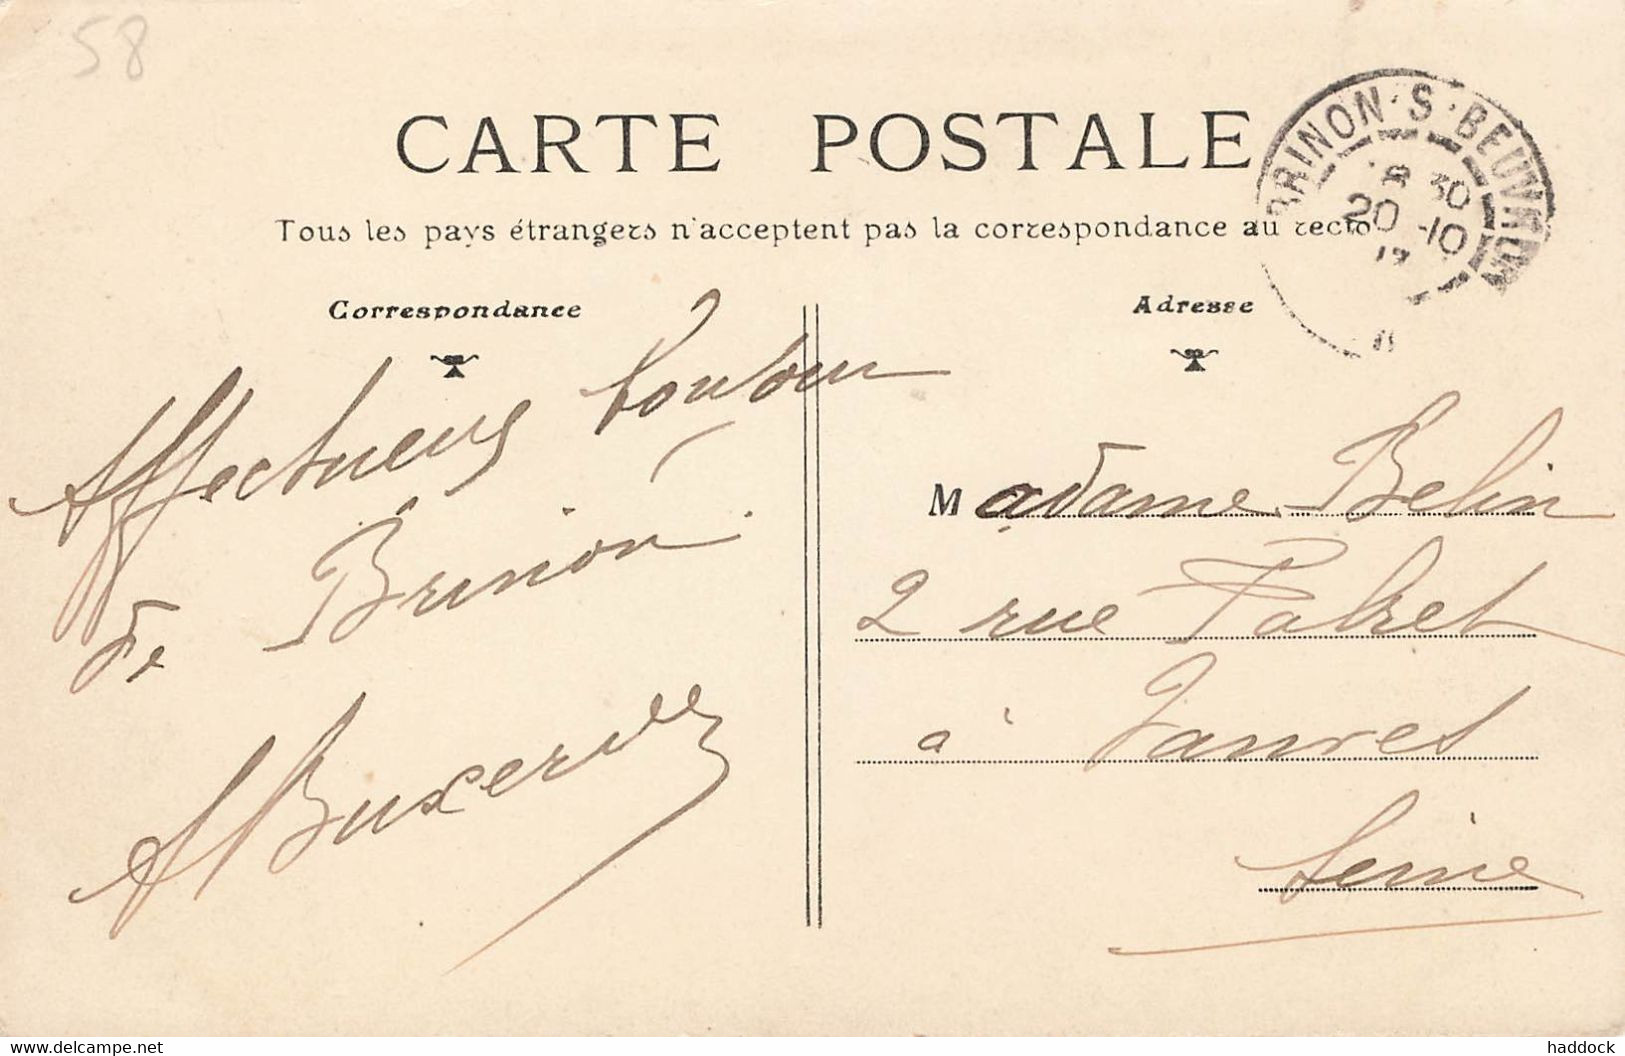 58
CARTE POSTALE
Tous les pays étrangers n'acceptent pas la correspondance au recto
BRINON·S·BEUVRON
8 30
20 -10
Correspondance
Adresse
Affectueux
de Brinon
Madame Belin
2 rue
à Vanves
Seine
www.delcampe.net
haddock